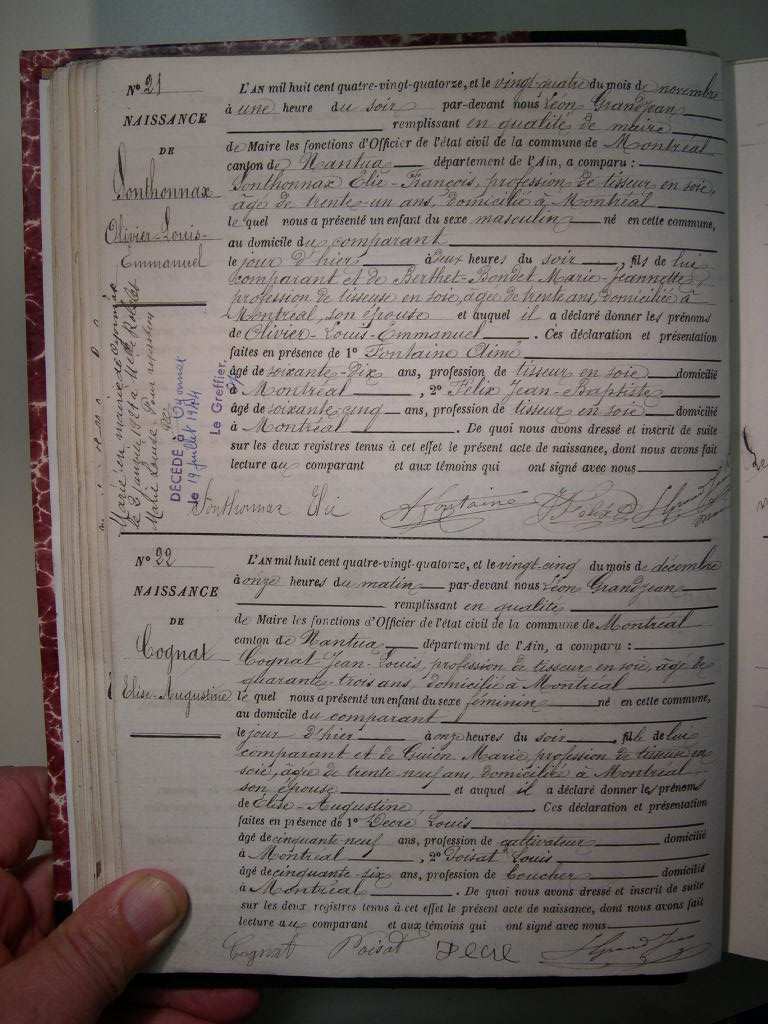 N° 21
NAISSANCE
DE
Sonthonnax
Olivier-Louis-
Emmanuel
L'AN mil huit cent quatre-vingt-quatorze, et le vingt-quatre du mois de novembre
à une heure du soir par-devant nous Léon Grandjean
remplissant en qualité de maire
de Maire les fonctions d'Officier de l'état civil de la commune de Montréal
canton de Nantua département de l'Ain, a comparu :
Sonthonnax Elie-François, profession de tisseur en soie,
âgé de trente-un ans, domicilié à Montréal
le quel nous a présenté un enfant du sexe masculin né en cette commune,
au domicile du comparant
le jour d'hier à deux heures du soir, fils de lui
comparant et de Berthet-Bondet Marie-Jeannette,
profession de tisseuse en soie, âgée de trente ans, domiciliée à
Montréal, son épouse et auquel il a déclaré donner les prénoms
de Olivier-Louis-Emmanuel. Ces déclaration et présentation
faites en présence de 1° Fontaine Aimé
âgé de soixante-dix ans, profession de tisseur en soie domicilié
à Montréal, 2° Félix Jean-Baptiste
âgé de soixante cinq ans, profession de tisseur en soie domicilié
à Montréal. De quoi nous avons dressé et inscrit de suite
sur les deux registres tenus à cet effet le présent acte de naissance, dont nous avons fait
lecture au comparant et aux témoins qui ont signé avec nous
Sonthonnax Elie A Fontaine J Felix
Marié en mairie de
le 3 janvier
Marie Louise Pour mention
DÉCÉDÉ à Oyonnax
le 19 juillet 1944
Le Greffier,
N° 22
NAISSANCE
DE
Cognat
Elise-Augustine
L'AN mil huit cent quatre-vingt-quatorze, et le vingt-cinq du mois de décembre
à onze heures du matin par-devant nous Léon Grandjean
remplissant en qualité
de Maire les fonctions d'Officier de l'état civil de la commune de Montréal
canton de Nantua département de l'Ain, a comparu :
Cognat Jean-Louis, profession de tisseur en soie, âgé de
quarante-trois ans, domicilié à Montréal
le quel nous a présenté un enfant du sexe féminin né en cette commune,
au domicile du comparant
le jour d'hier à onze heures du soir, fille de lui
comparant et de Guion Marie, profession de tisseuse en
soie, âgée de trente neuf ans, domiciliée à Montréal
son épouse et auquel il a déclaré donner les prénoms
de Elise-Augustine, Ces déclaration et présentation
faites en présence de 1° Decré Louis
âgé de cinquante-neuf ans, profession de cultivateur domicilié
à Montréal, 2° Poisat Louis
âgé de cinquante-six ans, profession de boucher domicilié
à Montréal. De quoi nous avons dressé et inscrit de suite
sur les deux registres tenus à cet effet le présent acte de naissance, dont nous avons fait
lecture au comparant et aux témoins qui ont signé avec nous
Cognat Poisat Decré L Grandjean